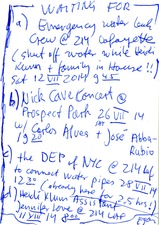 WAITING FOR
a) Emergency water leak
Crew @ 214 Lafayette
(shut off water while Heidi
Klum + family in House!!)
Sat 12 VII 2014 9 45
b) Nick Cave Concert @
Prospect Park 26 VII 14
w/ Carlos Alves + José Alba-
Rubio
9 20
c) the DEP of NYC @ 214 Laf
to connect water pipes 28 VII 14
12 30 (already here for 2.5 hrs!)
d) Heidi Klum Assistant
Jennifer Love @ 214 LAF
11 VIII 14 8 00